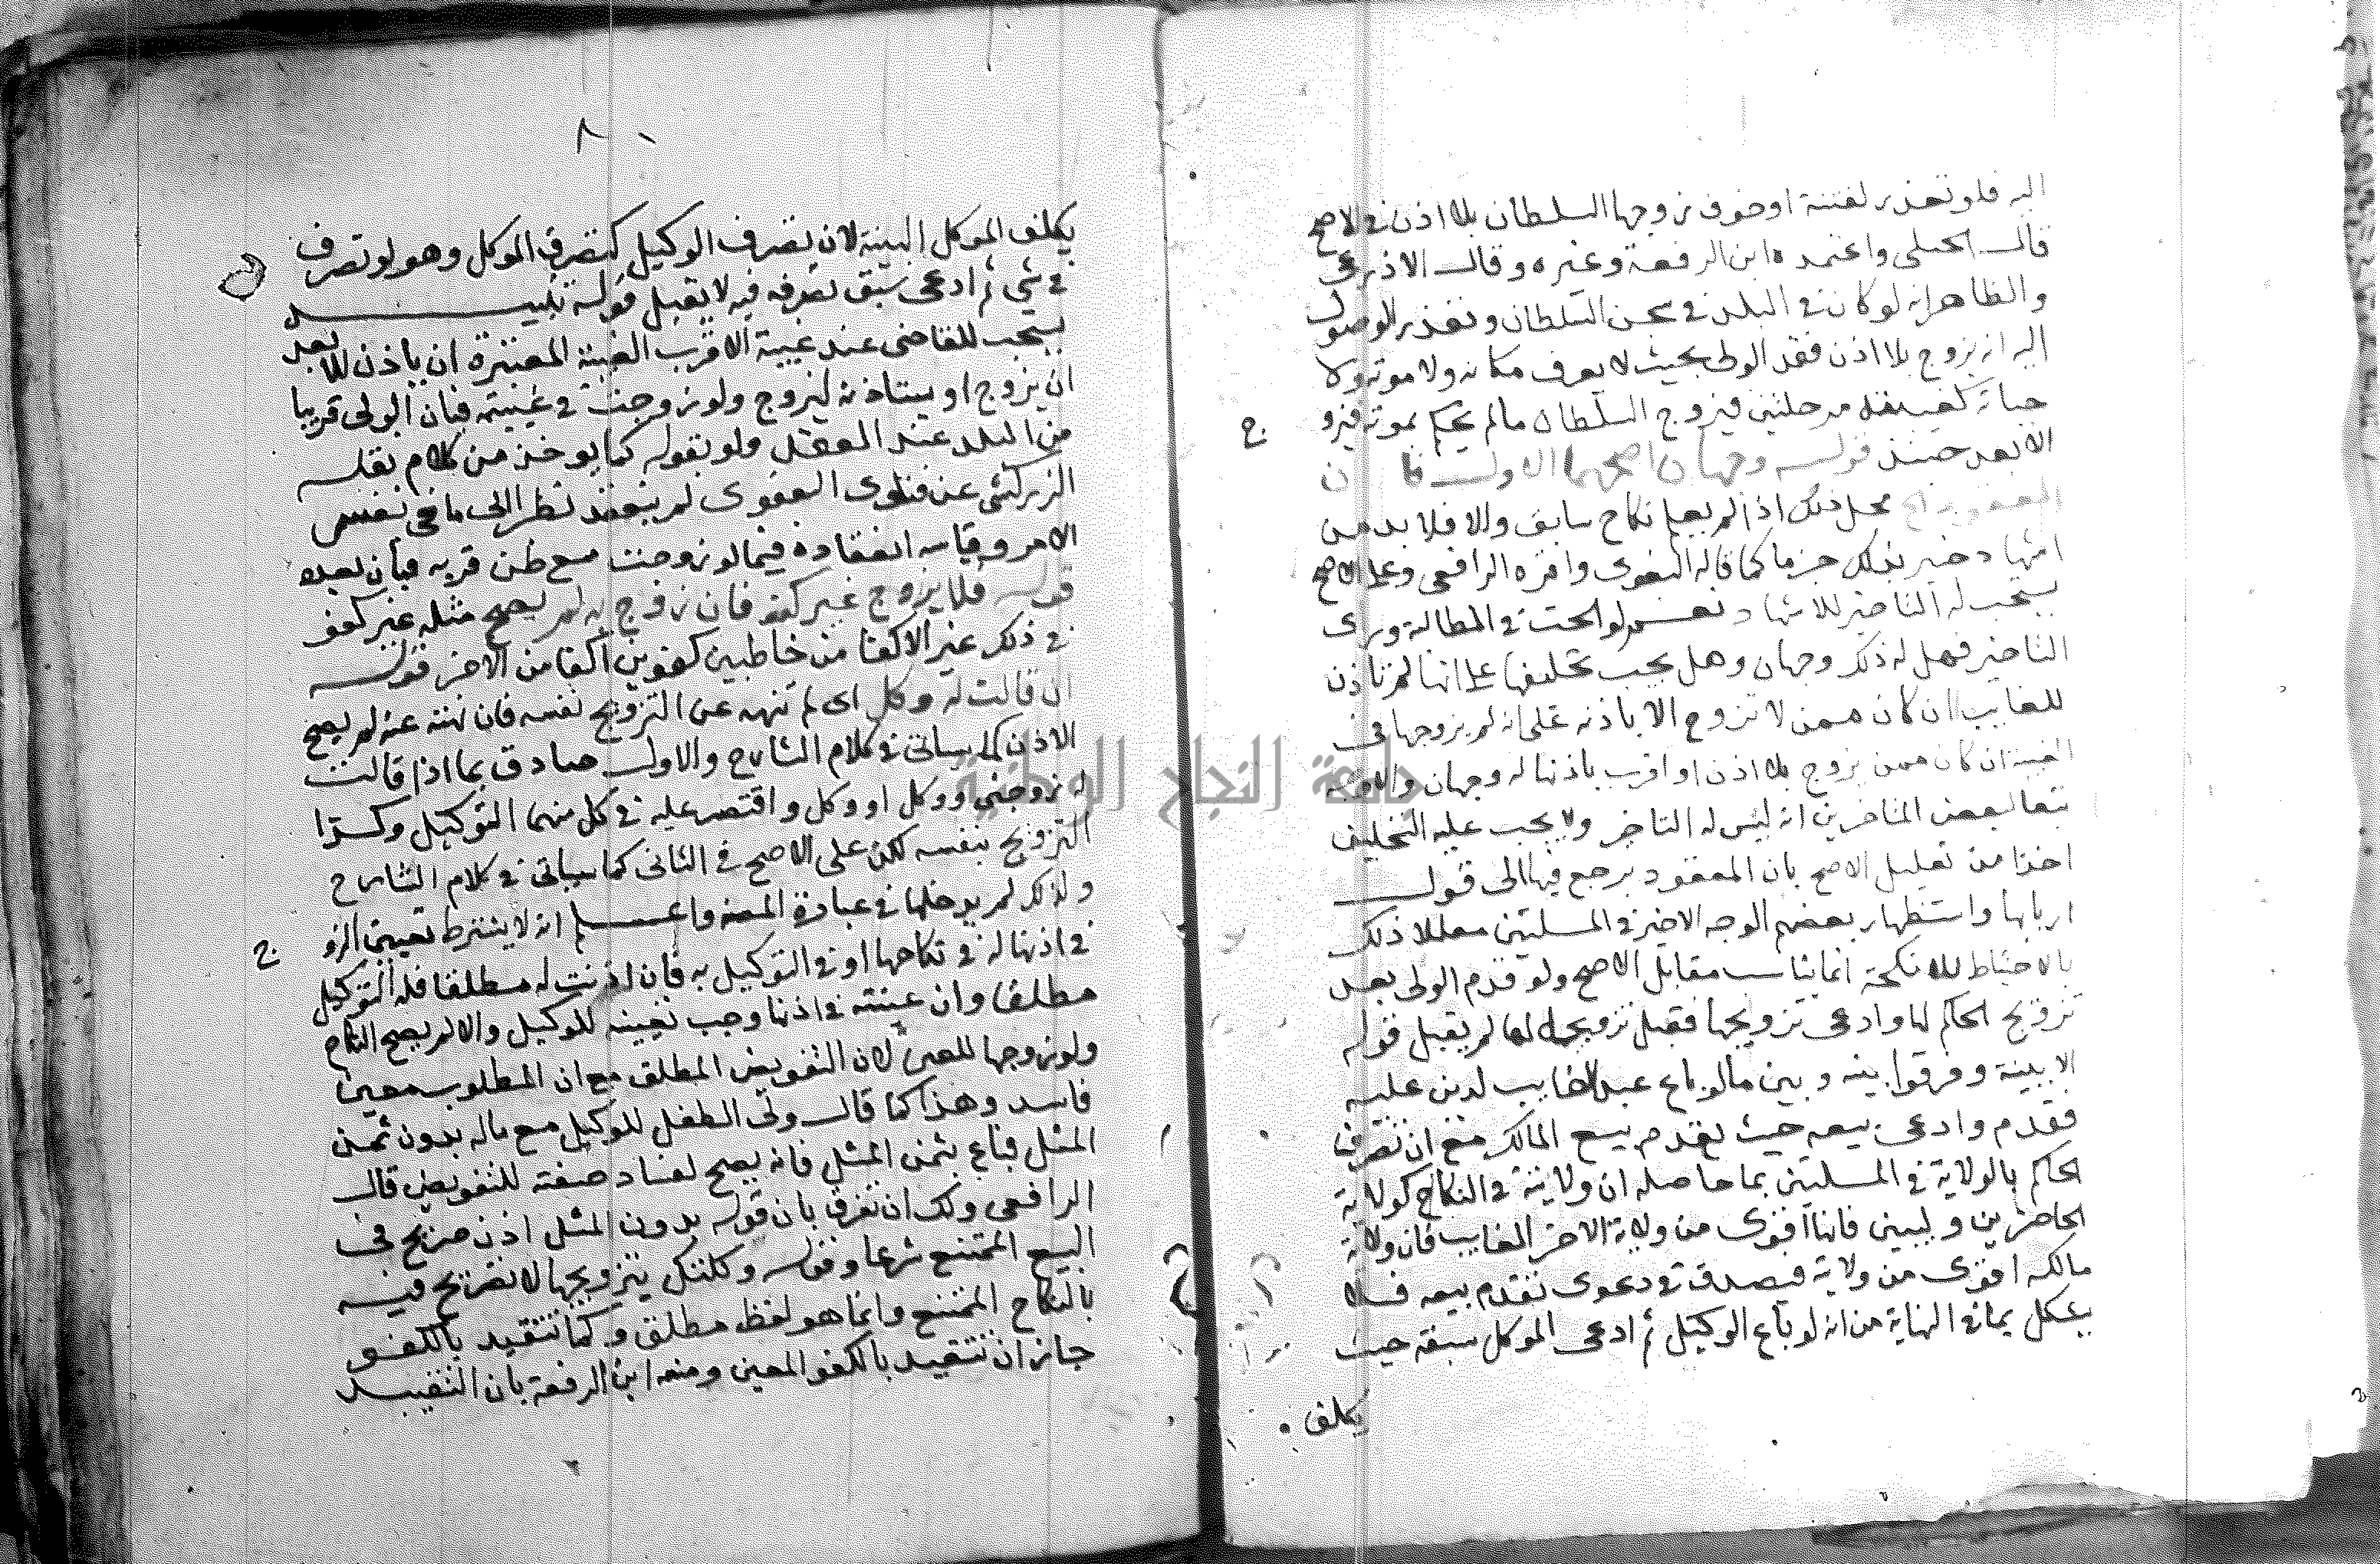 اليه فلو تعذر لفتنة او خوف زوجها السلطان بلا اذن في الاصح
قال الحلى واعتمده ابن الرفعة وغيره وقال الاذرعى
والظاهر انه لو كان في البلد في سجن السلطان وتعذر الوصول
اليه انه يزوج بلا اذن فقد الولى بحيث لا يعرف مكانه ولا موته ولا
حياته كغيبته مرحلتين فيزوج السلطان ما لم يحكم بموته فيزو
ج
الابعد حينئذ قوله وجهان اصحهما الاول
محل ذلك اذا لم يعلم نكاح سابق والا فلا بد من
اثبات بذلك جزما كما قاله البغوى واقره الرافعى وعلى الاصح
يستحب له التاخير للاشهاد نعم لو الحت في المطالبة وراى
التاخير فهل له ذلك وجهان وهل يجب تحليفها على انها لم تاذن
للغايب ان كان ممن لا تزوج الا باذنه على انه لم يزوجها في
الغيبة ان كان ممن يزوج بلا اذن او اقرب باذنها له وجهان والاوجه
تبعا لبعض المتاخرين انه ليس له التاخير ولا يجب عليه التحليف
اخذا من تعليل الاصح بان العقود يرجع فيها الى قول
اربابها واستظهار بعضهم الوجه الاخير في المسلتين معللا ذلك
بالاحتياط للانكحة انما يناسب مقابل الاصح ولو قدم الولى بعد
تزويج الحاكم لها وادعى تزويجها قبل تزويجه لها لم يقبل قوله
الا ببينة وفرقوا بينه وبين ما لو باع عبد الغايب لدين عليه
فقدم وادعى بيعه حيث يقدم بيع المالك مع ان تصرف
الحاكم بالولاية في المسلتين بما حاصله ان ولايته في النكاح كولاية
الحاضرين وليين فانها اقوى من ولاية الاخر الغايب فان ولاية
مالكه اقوى من ولايته فيصدق في دعوى تقدم بيعه فلا
يشكل بما في النهاية من انه لو باع الوكيل ثم ادعى الموكل سبقه حيث
يكلف
٨٠
يكلف الموكل البينة لان تصرف الوكيل كتصرف الموكل وهو لو تصرف
في شي ثم ادعى سبق تصرفه فيه لا يقبل قوله تنبيه
يستحب للقاضى عند غيبة الاقرب الغيبة المعتبرة ان ياذن للابعد
ان يزوج او يستاذنه ليزوج ولو زوجت في غيبته فبان الولى قريبا
من البلد عند العقد ولو بقوله كما يوخذ من كلام نقله
الزركشى عن فتاوى البغوى لم ينعقد نظرا الى ما في نفس
الامر وقياسه انعقاده فيما لو زوجت مع ظن قربه فبان بعده
قوله فلا يزوج غير كفو فان زوج به لم يصح مثله غير كفو
في ذلك غير الاكفا من خاطبين كفوين اكفا من الاخر قوله
ان قالت له وكل اى لم تنهه عن التزويج نفسه فان نهته عنه لم يصح
الاذن كما سياتى في كلام الشارح والاول صادق بما اذا قالت
له زوجنى ووكل او وكل واقتصر عليه في كل منهما التوكيل وكذا
التزويج بنفسه لكن على الاصح في الثانى كما سياتى في كلام الشارح
ولذلك لم يدخلها في عبارة المصنف واعلم انه لا يشترط تعيين الزو
ج
في اذنها له في نكاحها او في التوكيل به فان اذنت له مطلقا فله التوكيل
مطلقا وان عينته في اذنها وجب تعيينه للوكيل والا لم يصح النكاح
ولو زوجها للمعين لان التفويض المطلق مع ان المطلوب معين
فاسد وهذا كما قال ولى الطفل للوكيل مع ماله بدون ثمن
المثل فباع بثمن المثل فانه يصح لفساد صفته للتفويض قال
الرافعى ولك ان تفرق بان قوله بدون المثل اذن صريح في
البيع الممتنع شرعا وقوله وكلتك بتزويجها لا تصريح فيه
بالنكاح الممتنع وانما هو لفظ مطلق وكما تتقيد بالكفو
جاز ان تتقيد بالكفو المعين ومنعه ابن الرفعة بان التقييد
جامعة النجاح الوطنية